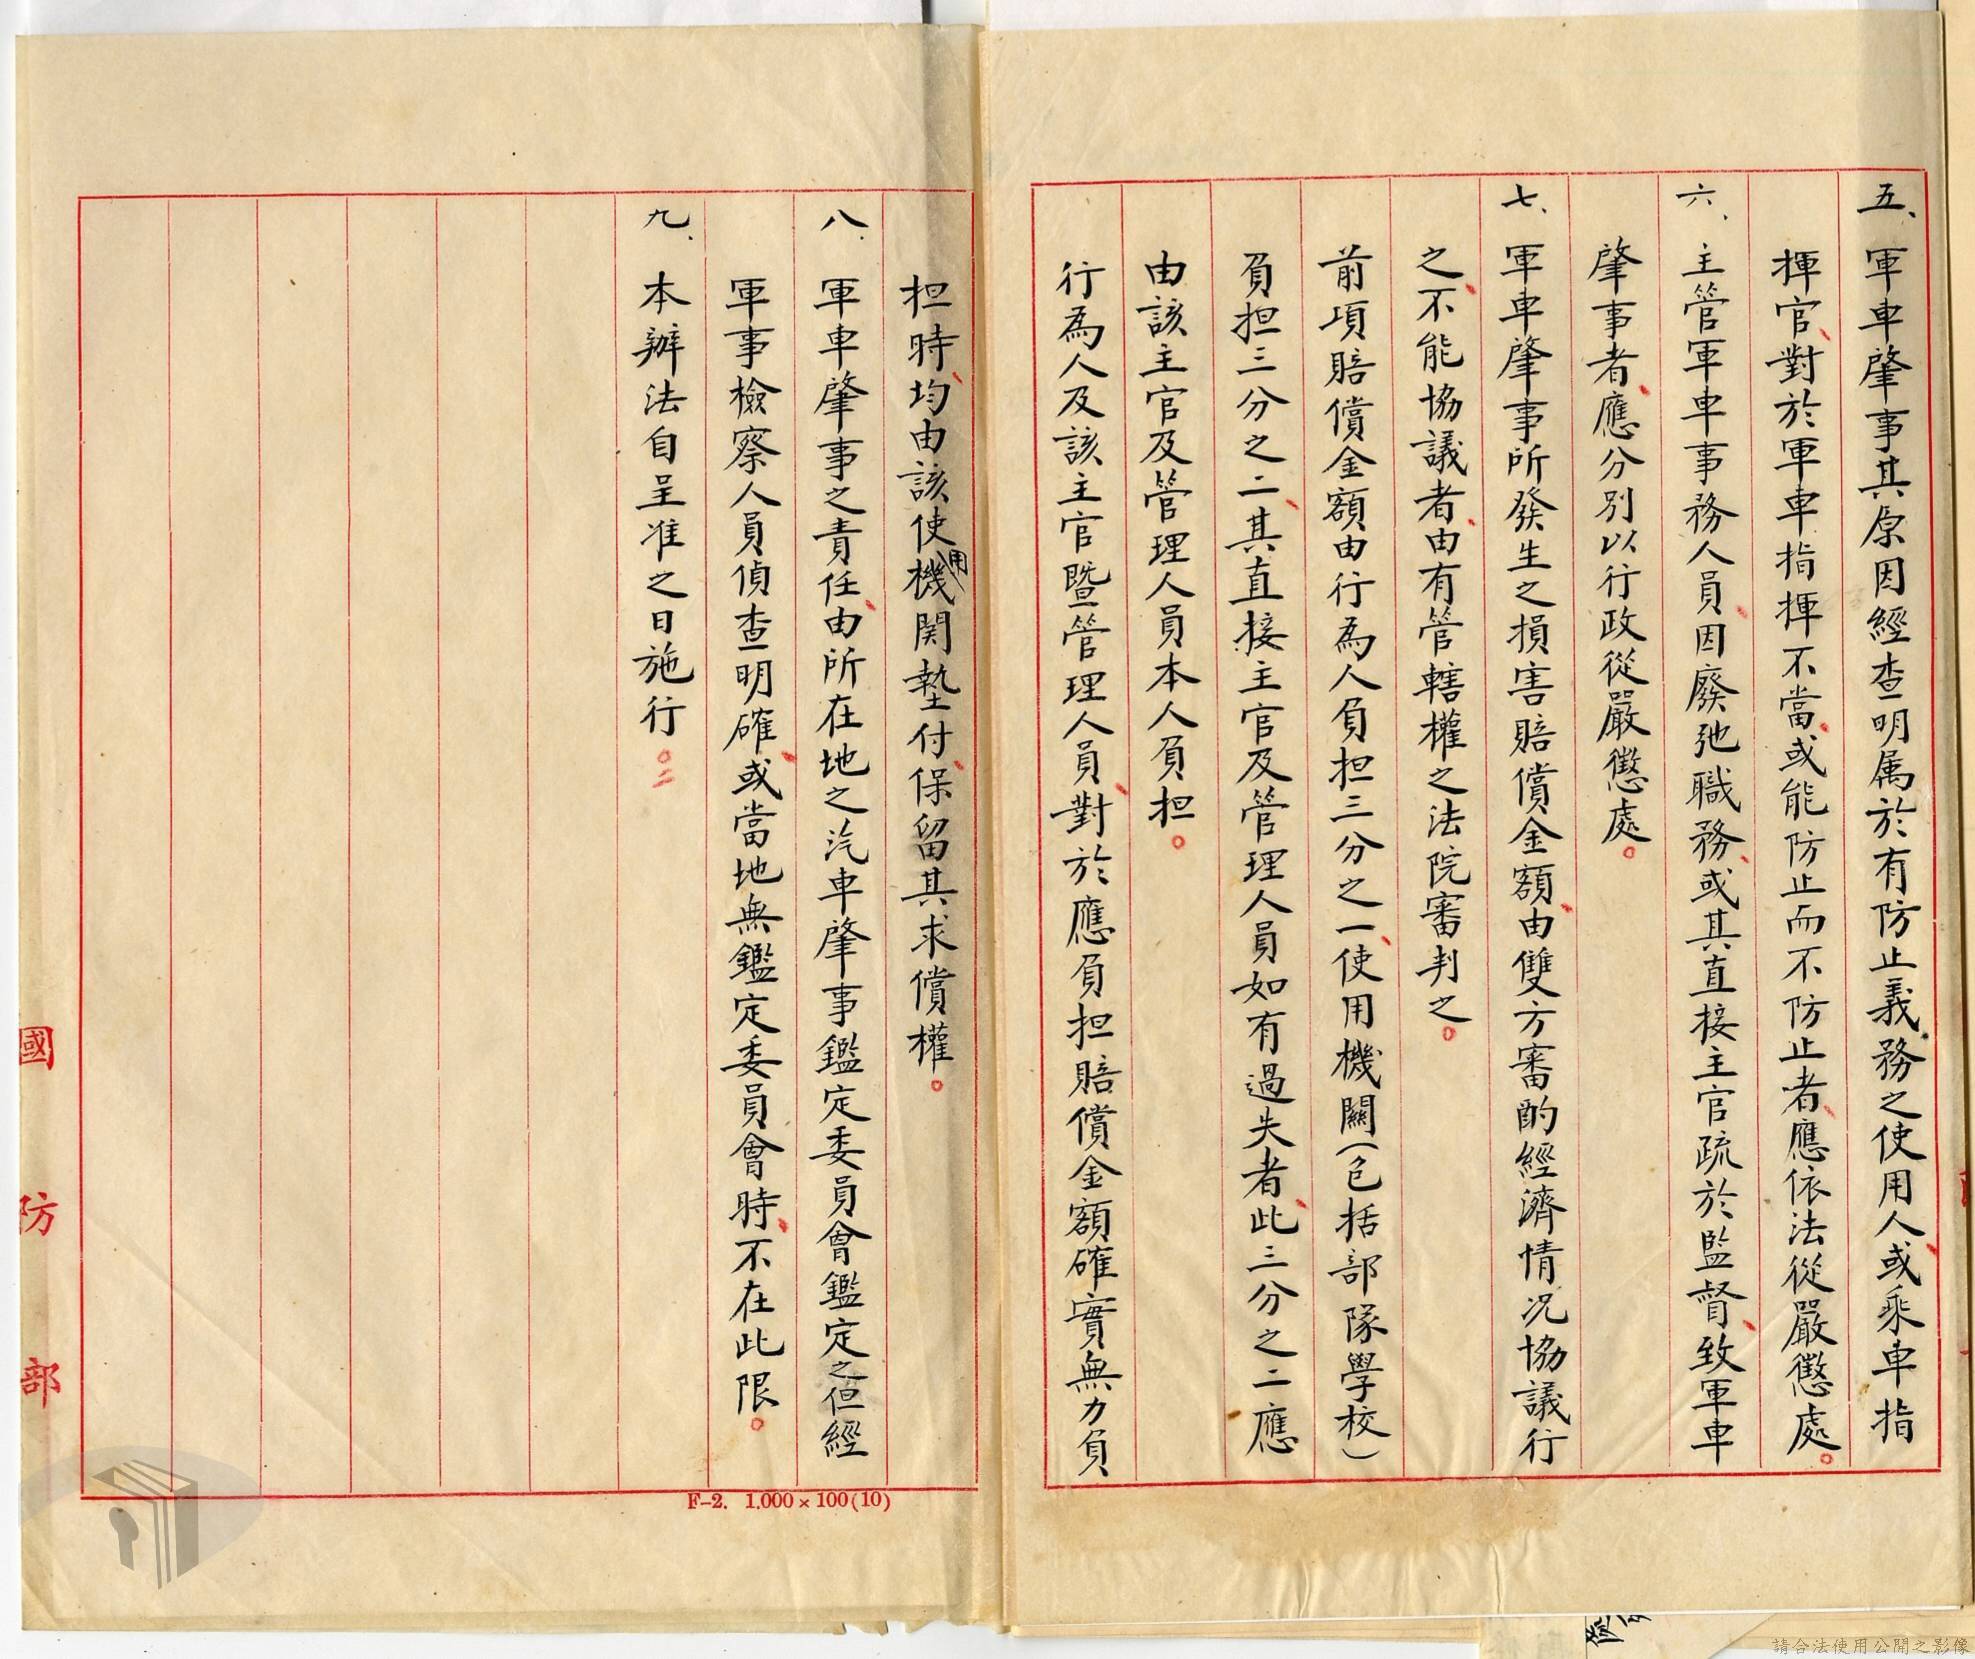 五、軍車肇事其原因經查明属於有防止義務之使用人或乘車指
揮官、對於軍車指揮不當、或能防止而不防止者、應依法從嚴懲處。
六、主管軍車事務人員、因廢弛職務、或其直接主官疏於監督、致軍車
肇事者、應分別以行政從嚴懲處。
七、軍車肇事所發生之損害賠償金額、由雙方審酌經濟情况協議行
之、不能協議者、由有管轄權之法院審判之。
前項賠償金額由行為人負担三分之一、使用機關(包括部隊學校)
負担三分之二、其直接主官及管理人員如有過失者、此三分之二應
由該主官及管理人員本人負担。
行為人及該主官暨管理人員、對於應負担賠償金額確實無力負
担時、均由該使用機関墊付、保留其求償權。
八、軍車肇事之責任、由所在地之汽車肇事鑑定委員會鑑定之但經
軍事檢察人員偵查明確、或當地無鑑定委員會時、不在此限。
九、本辦法自呈准之日施行。
國防部
F-2. 1.000×100(10)
請合法使用公開之影像